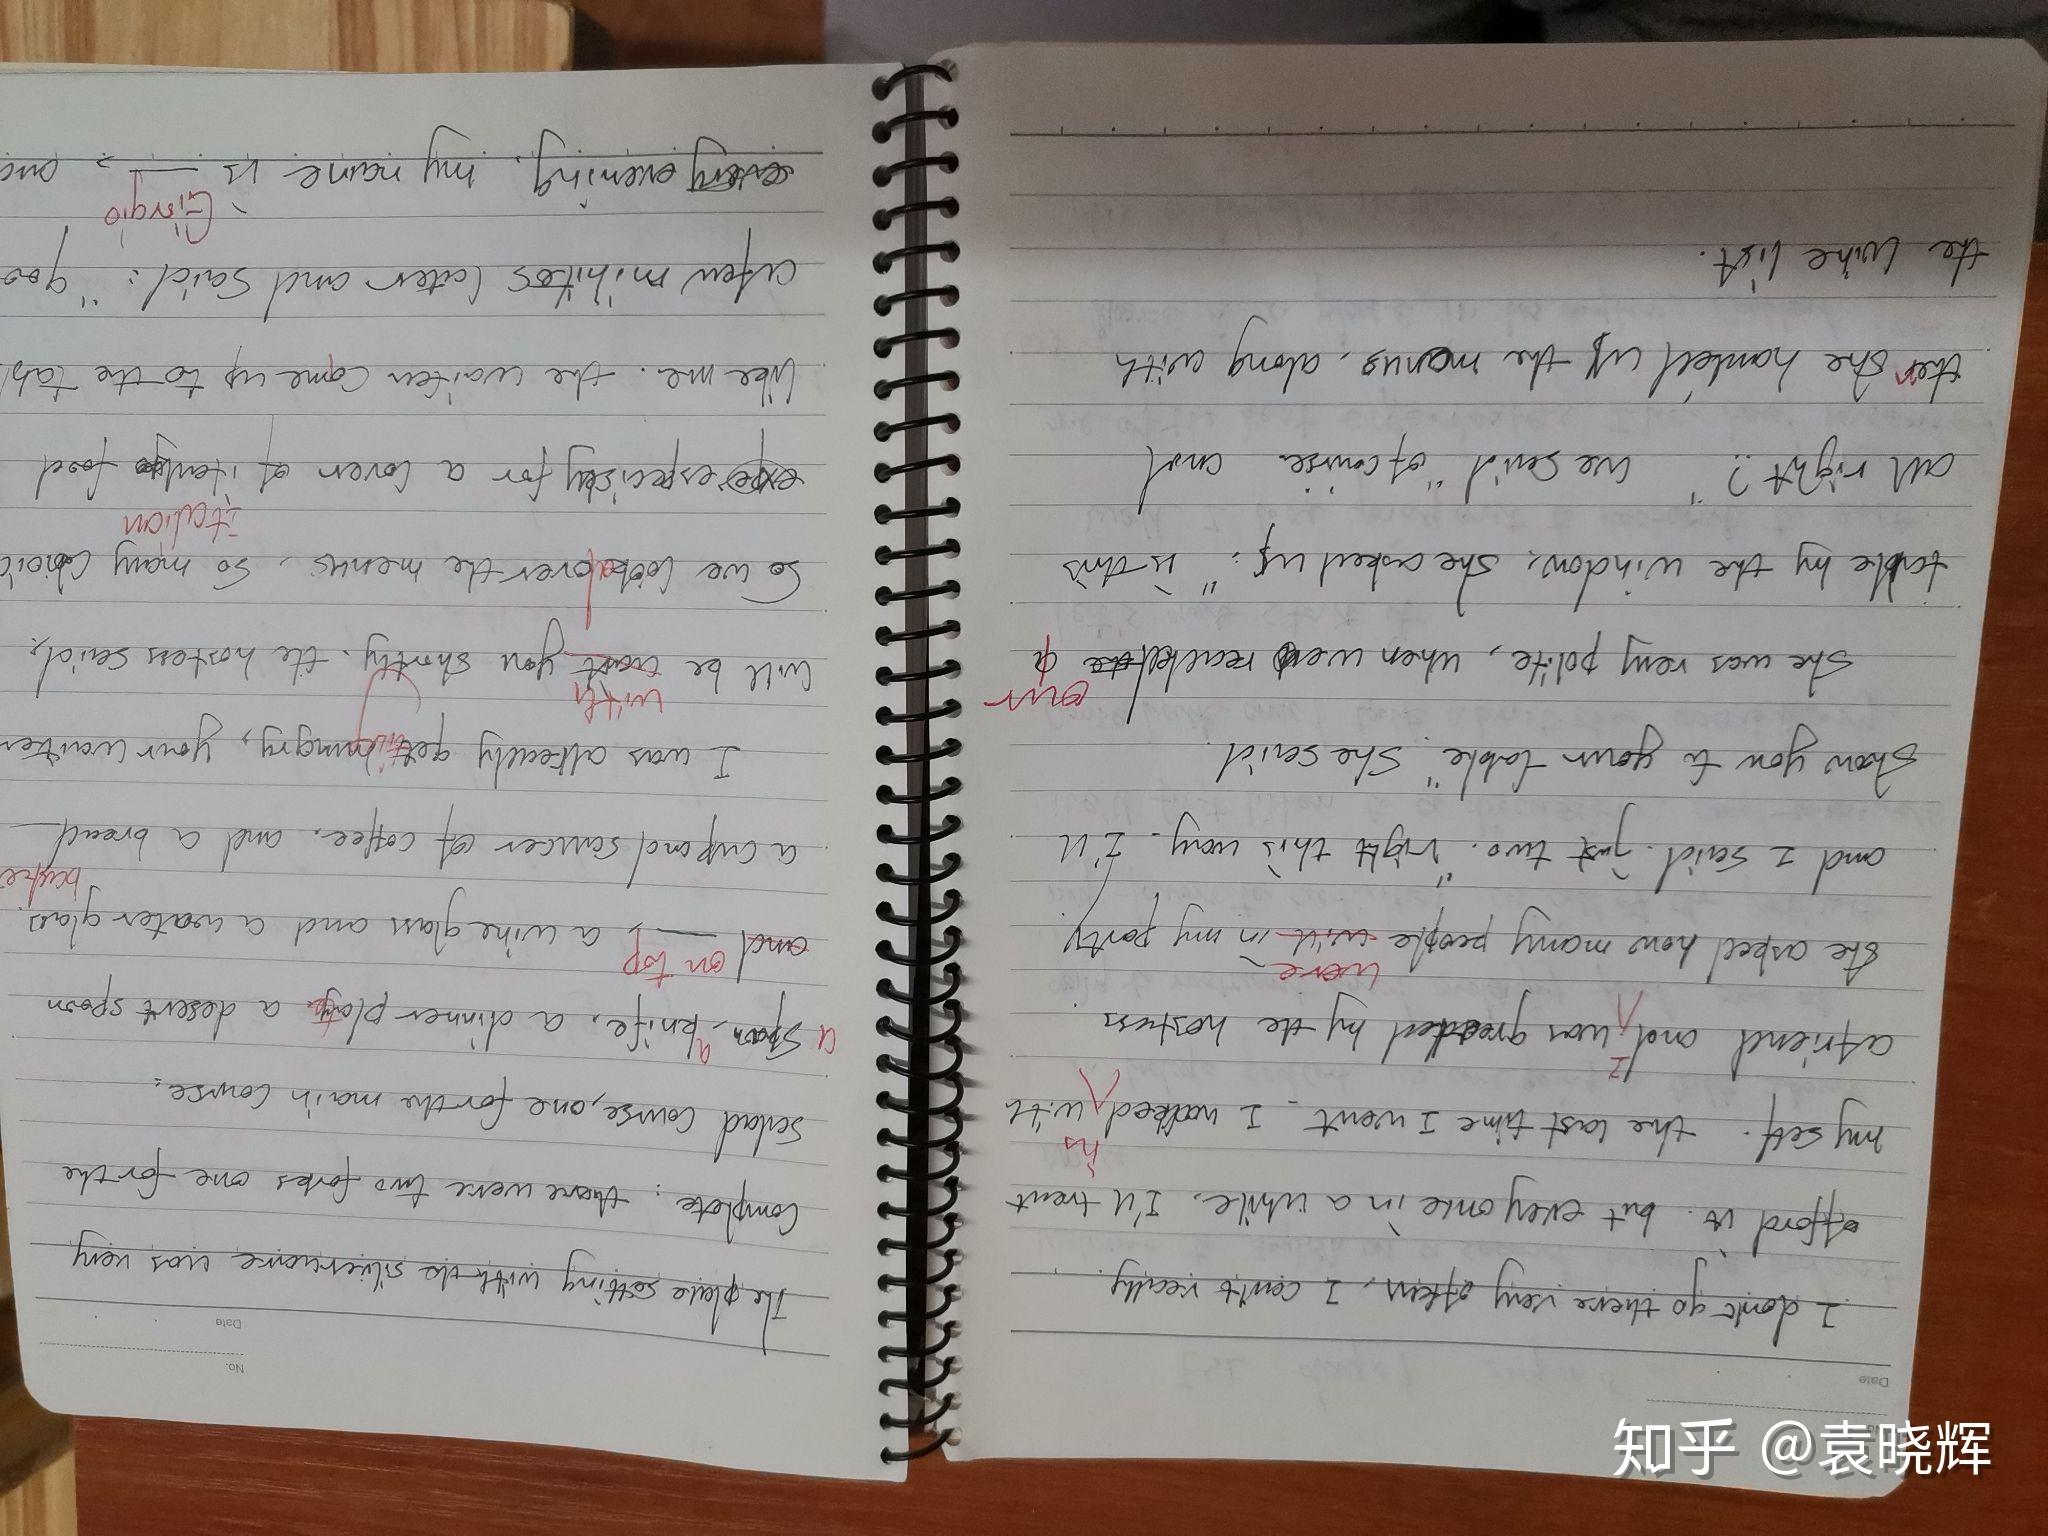 Date
I don't go there very often, I can't really
afford it. but every once in a while, I'll treat
in
my self. the last time I went. I walked with
I
a friend and was greeted by the hostess.
were
She asked how many people will in my party
and I said. just two. "right this way. I'll
show you to your table" She said.
our
She was very polite, when we reached the
table by the window, she asked us: "is this
all right?" we said "of course" and
then she handed us the menus, along with
the wine list.
No.
Date
The place setting with the silverware was very
complete: there were two forks one for the
salad course, one for the main course.
a spoon, a knife, a dinner plate, a desert spoon
on top
and , a wine glass and a water glass.
a cup and saucer of coffee, and a bread
I was already getting hungry, your waiter
with
will be you shortly. the hostess said.
So we look over the menus, So many
italian
especially for a lover of food
like me. the waiter came up to the
a few minites later and said: "
Giorgio
every evening, my name is ,
知乎 @袁晓辉